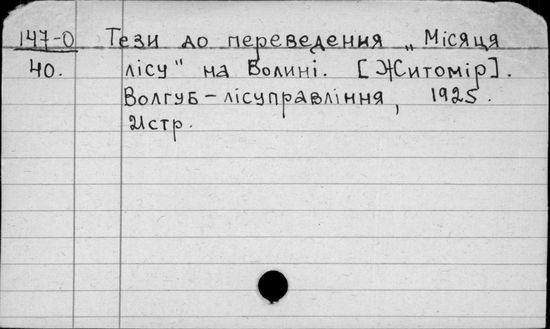 147-0 Тези до переведення „Місяця
40. лісу" на Волині. [Житомір].
Волгуб-лісуправління, 1925.
21стр.